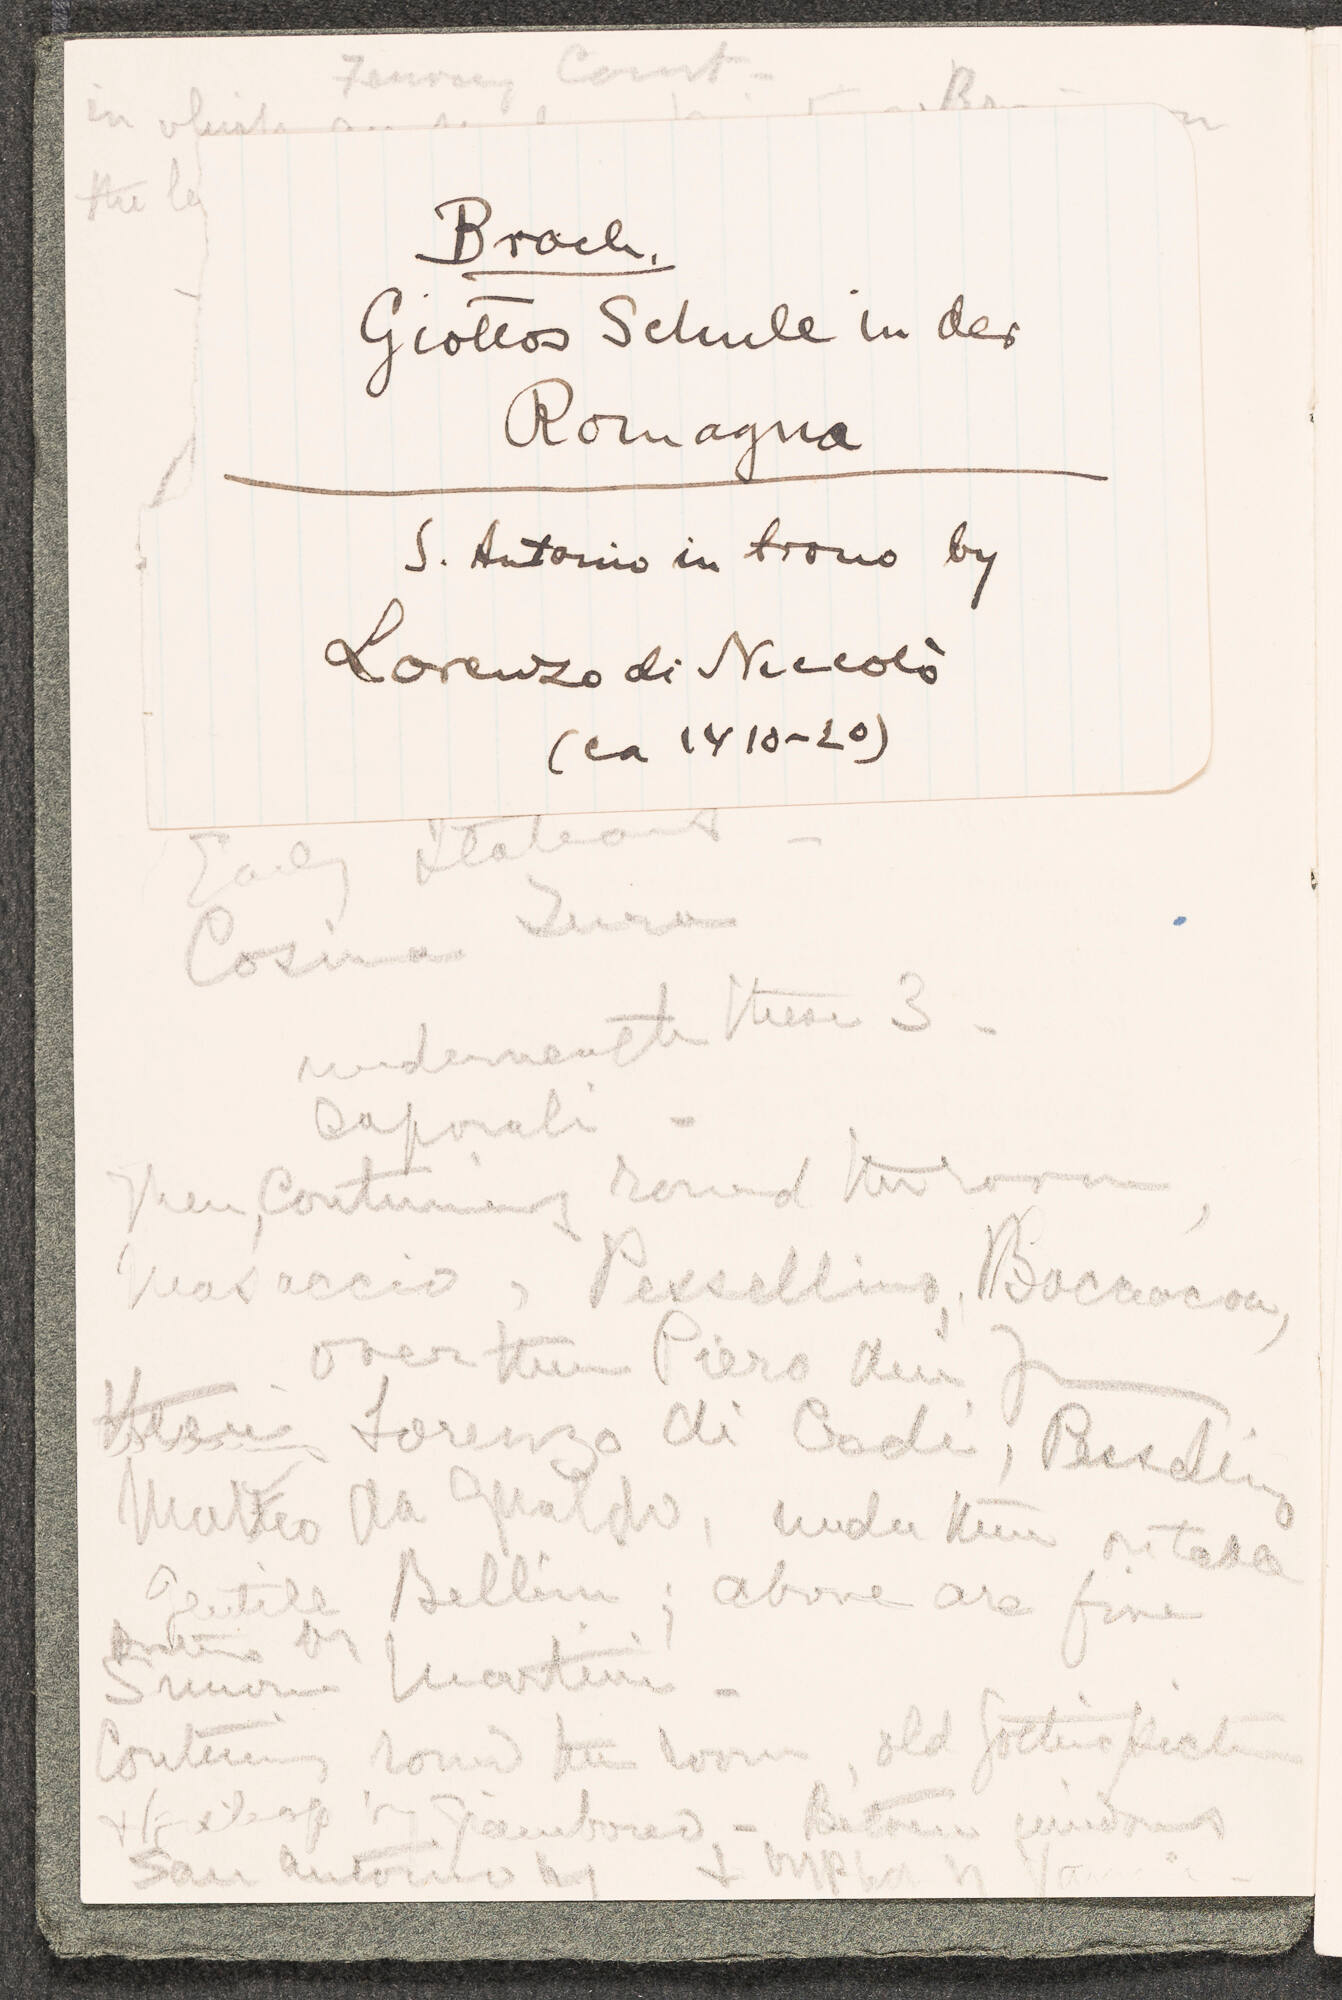 Fenway Court -
in which
the
Brach.
Giottos Schule in der
Romagna
S. Antonio in trono by
Lorenzo di Niccolò
(ca 1410-20)
Early Italians -
Cosima Tura
underneath these 3 -
Caporali -
Then, continuing round the room,
Masaccio, Pessellino, Boccaccio,
over them Piero dei F
Lorenzo di Credi, Pessellino
Matteo da Gualdo, under them
Gentile Bellini; above are fine
Simone Martini -
Continuing round the room, old Gothic
by Giambono - Between windows
San Antonio by